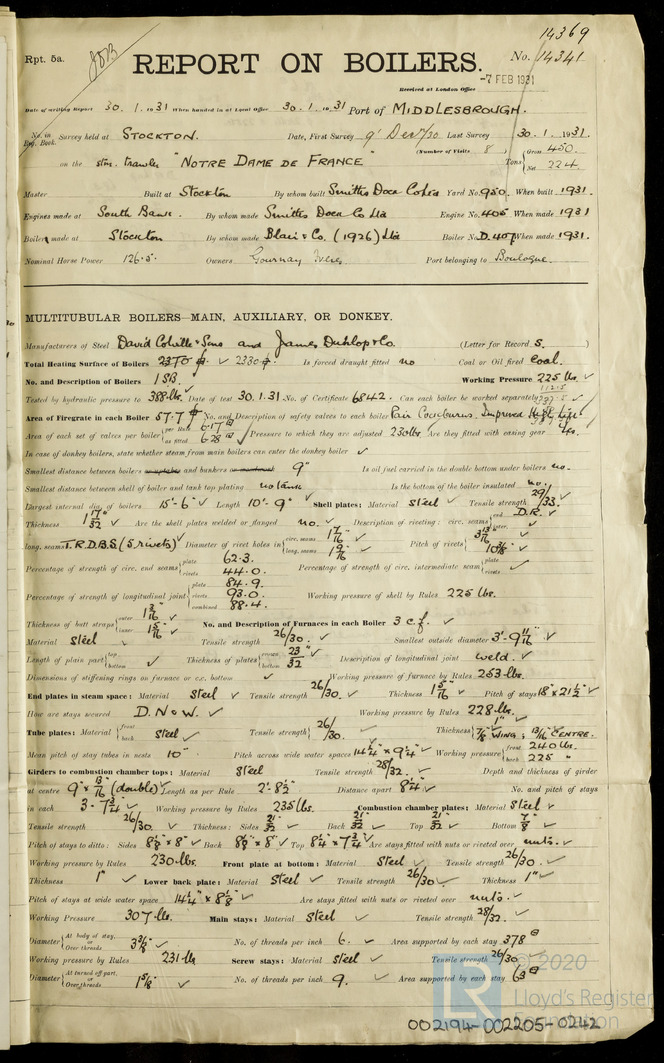 14369
Rpt. 5a.
REPORT ON BOILERS.
No. 14341
Received at London Office
-7 FEB 1931
Date of writing Report 30. 1. 1931 When handed in at Local Office 30. 1. 1931 Port of MIDDLESBROUGH.
No. in Reg. Book. Survey held at STOCKTON. Date, First Survey 9' Dec Last Survey 30. 1. 1931.
(Number of Visits 8)
on the stm. trawler "NOTRE DAME DE FRANCE" Tons { Gross 450. Net 224.
Master Built at Stockton By whom built Smiths Dock Co Ltd Yard No. 950. When built 1931.
Engines made at South Bank. By whom made Smiths Dock Co Ltd Engine No. 405 When made 1931
Boilers made at Stockton By whom made Blair & Co. (1926) Ltd Boiler No. D.407 When made 1931.
Nominal Horse Power 126.5. Owners Gournay Port belonging to Boulogne.
MULTITUBULAR BOILERS—MAIN, AUXILIARY, OR DONKEY.
Manufacturers of Steel David Colville & Sons and James Dunlop & Co. (Letter for Record S.)
Total Heating Surface of Boilers 2370 ✓ 2330 Is forced draught fitted no Coal or Oil fired Coal.
No. and Description of Boilers 1 SB. Working Pressure 225 lbs. ✓
Tested by hydraulic pressure to 388 lbs. ✓ Date of test 30.1.31 No. of Certificate 6842. Can each boiler be worked separately
Area of Firegrate in each Boiler 57.7 No. and Description of safety valves to each boiler Pair Cockburns. Improved High Lift
Area of each set of valves per boiler { per Rule 6.17 as fitted 6.28 Pressure to which they are adjusted 230 lbs. Are they fitted with easing gear Yes.
In case of donkey boilers, state whether steam from main boilers can enter the donkey boiler ✓
Smallest distance between boilers or uptakes and bunkers or woodwork 9" Is oil fuel carried in the double bottom under boilers no.
Smallest distance between shell of boiler and tank top plating no tank Is the bottom of the boiler insulated no.
Largest internal dia. of boilers 15'-6" ✓ Length 10'-9" ✓ Shell plates: Material Steel ✓ Tensile strength 29/33. ✓
Thickness 1 17/32" ✓ Are the shell plates welded or flanged no. ✓ Description of riveting: circ. seams { end D.R. ✓ inter. ✓
long. seams T.R.D.B.S. (5 rivets) ✓ Diameter of rivet holes in { circ. seams 1 7/16" ✓ long. seams 1 9/16" ✓ Pitch of rivets { 3 13/16" 10 3/8" ✓
Percentage of strength of circ. end seams { plate 62.3. rivets 44.0. Percentage of strength of circ. intermediate seam { plate rivets ✓
Percentage of strength of longitudinal joint { plate 84.9. rivets 93.0. combined 88.4. Working pressure of shell by Rules 225 lbs.
Thickness of butt straps { outer 1 3/16" inner 1 5/16" ✓ No. and Description of Furnaces in each Boiler 3 c.f. ✓
Material Steel ✓ Tensile strength 26/30. ✓ Smallest outside diameter 3'-9 11/16" ✓
Length of plain part { top bottom ✓ Thickness of plates { crown bottom 23/32" ✓ Description of longitudinal joint weld. ✓
Dimensions of stiffening rings on furnace or c.c. bottom ✓ Working pressure of furnace by Rules 253 lbs.
End plates in steam space: Material Steel ✓ Tensile strength 26/30. ✓ Thickness 1 5/16" ✓ Pitch of stays 18" x 21 1/2" ✓
How are stays secured D.N & W. ✓ Working pressure by Rules 228 lbs.
Tube plates: Material { front back Steel ✓ Tensile strength { 26/30. ✓ Thickness { 1" ✓ 7/8 WING; 13/16 CENTRE.
Mean pitch of stay tubes in nests 10" Pitch across wide water spaces 14 1/4" x 9 1/4" ✓ Working pressure { front 240 lbs. back 225 "
Girders to combustion chamber tops: Material Steel Tensile strength 28/32. ✓ Depth and thickness of girder
at centre 9" x 13/16" (double) ✓ Length as per Rule 2'-8 1/2" Distance apart 8 1/4" ✓ No. and pitch of stays
in each 3 - 7 3/4" ✓ Working pressure by Rules 235 lbs. Combustion chamber plates: Material Steel ✓
Tensile strength 26/30. ✓ Thickness: Sides 21/32" ✓ Back 21/32" ✓ Top 21/32" ✓ Bottom 7/8" ✓
Pitch of stays to ditto: Sides 8 1/8" x 8" ✓ Back 8 1/8" x 8" ✓ Top 8 1/4" x 7 3/4" ✓ Are stays fitted with nuts or riveted over nuts. ✓
Working pressure by Rules 230 lbs. Front plate at bottom: Material Steel ✓ Tensile strength 26/30. ✓
Thickness 1" ✓ Lower back plate: Material Steel ✓ Tensile strength 26/30 ✓ Thickness 1" ✓
Pitch of stays at wide water space 14 1/4" x 8 1/8" ✓ Are stays fitted with nuts or riveted over nuts. ✓
Working Pressure 307 lbs. Main stays: Material Steel ✓ Tensile strength 28/32. ✓
Diameter { At body of stay, or Over threads 3 3/8" ✓ No. of threads per inch 6. ✓ Area supported by each stay 378
Working pressure by Rules 231 lbs Screw stays: Material Steel ✓ Tensile strength 26/30 ✓
Diameter { At turned off part, or Over threads 1 5/8" ✓ No. of threads per inch 9. ✓ Area supported by each stay 63
© 2020
LR
Lloyd's Register
Foundation
002194-002205-0242